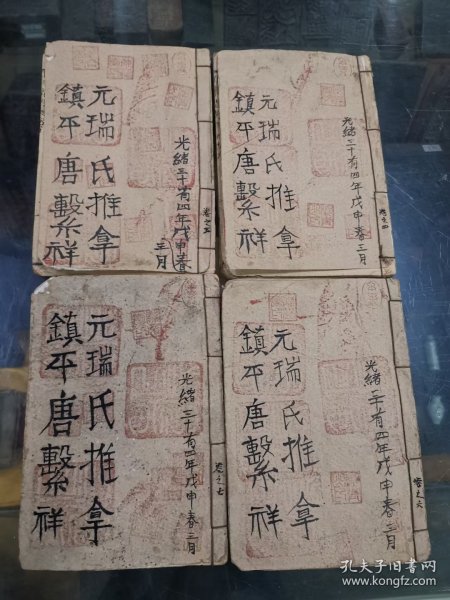 卷之五
光緒三十有四年戊申春
三月
元瑞氏推拿
鎮平唐繫祥
卷之四
光緒三十有四年戊申春三月
元瑞氏推拿
鎮平唐繫祥
卷之七
光緒三十有四年戊申春三月
元瑞氏推拿
鎮平唐繫祥
卷之六
光緒三十有四年戊申春三月
元瑞氏推拿
鎮平唐繫祥
孔夫子旧书网
www.kongfz.com